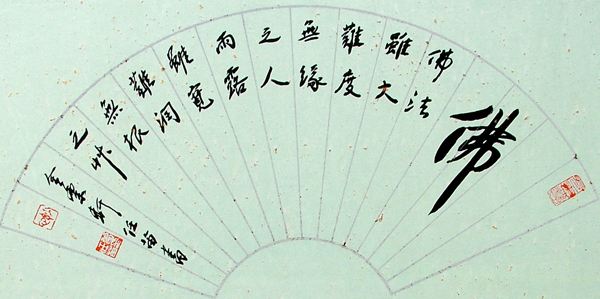 佛
佛法
雖大
難度
無緣
之人
雨露
雖寬
難潤
無根
之艸